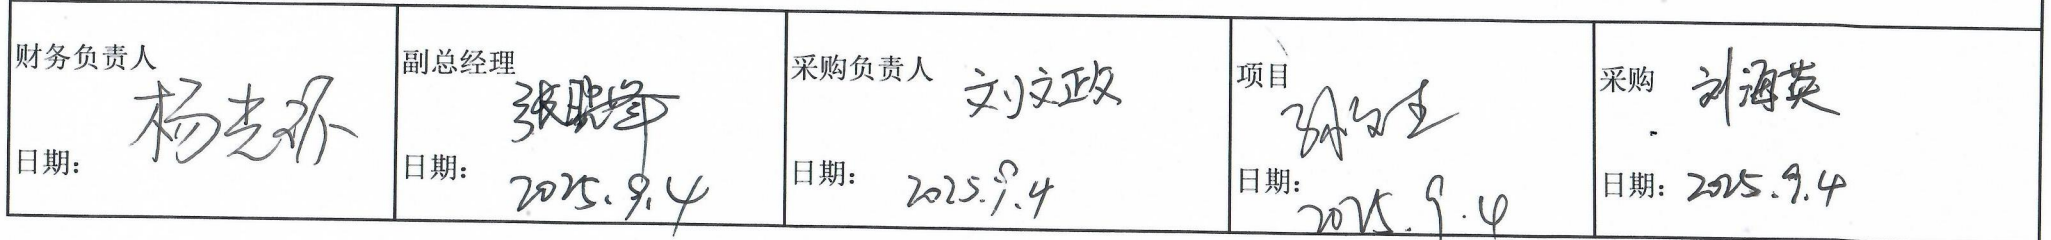 财务负责人
杨志
日期：
副总经理
张晓军
日期：
2025.9.4
采购负责人
刘文政
日期：
2025.9.4
项目
日期：
2025.9.4
采购
刘海英
日期：
2025.9.4